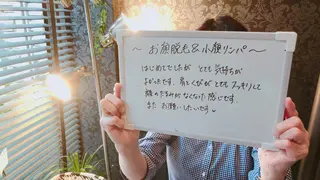 ～お顔脱毛&小顔リンパ～
はじめてでしたが とても気持ちが
よかったです。首しくびがとてもスッキリして
頬のたるみがなくなった感じです
また お願いしたいです